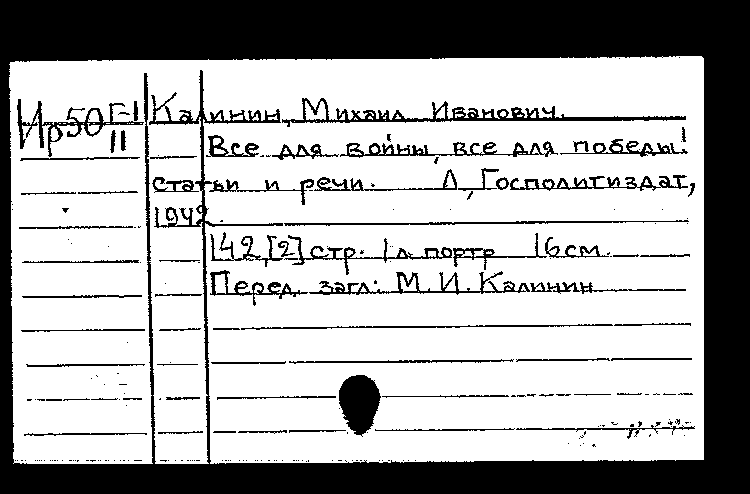 Ир50 Г-1
II
Калинин, Михаил Иванович.
Все для войны, все для победы!
статьи и речи. Л, Госполитиздат,
1942.
142,[2] стр. 1л. портр 16см.
Перед загл: М.И.Калинин